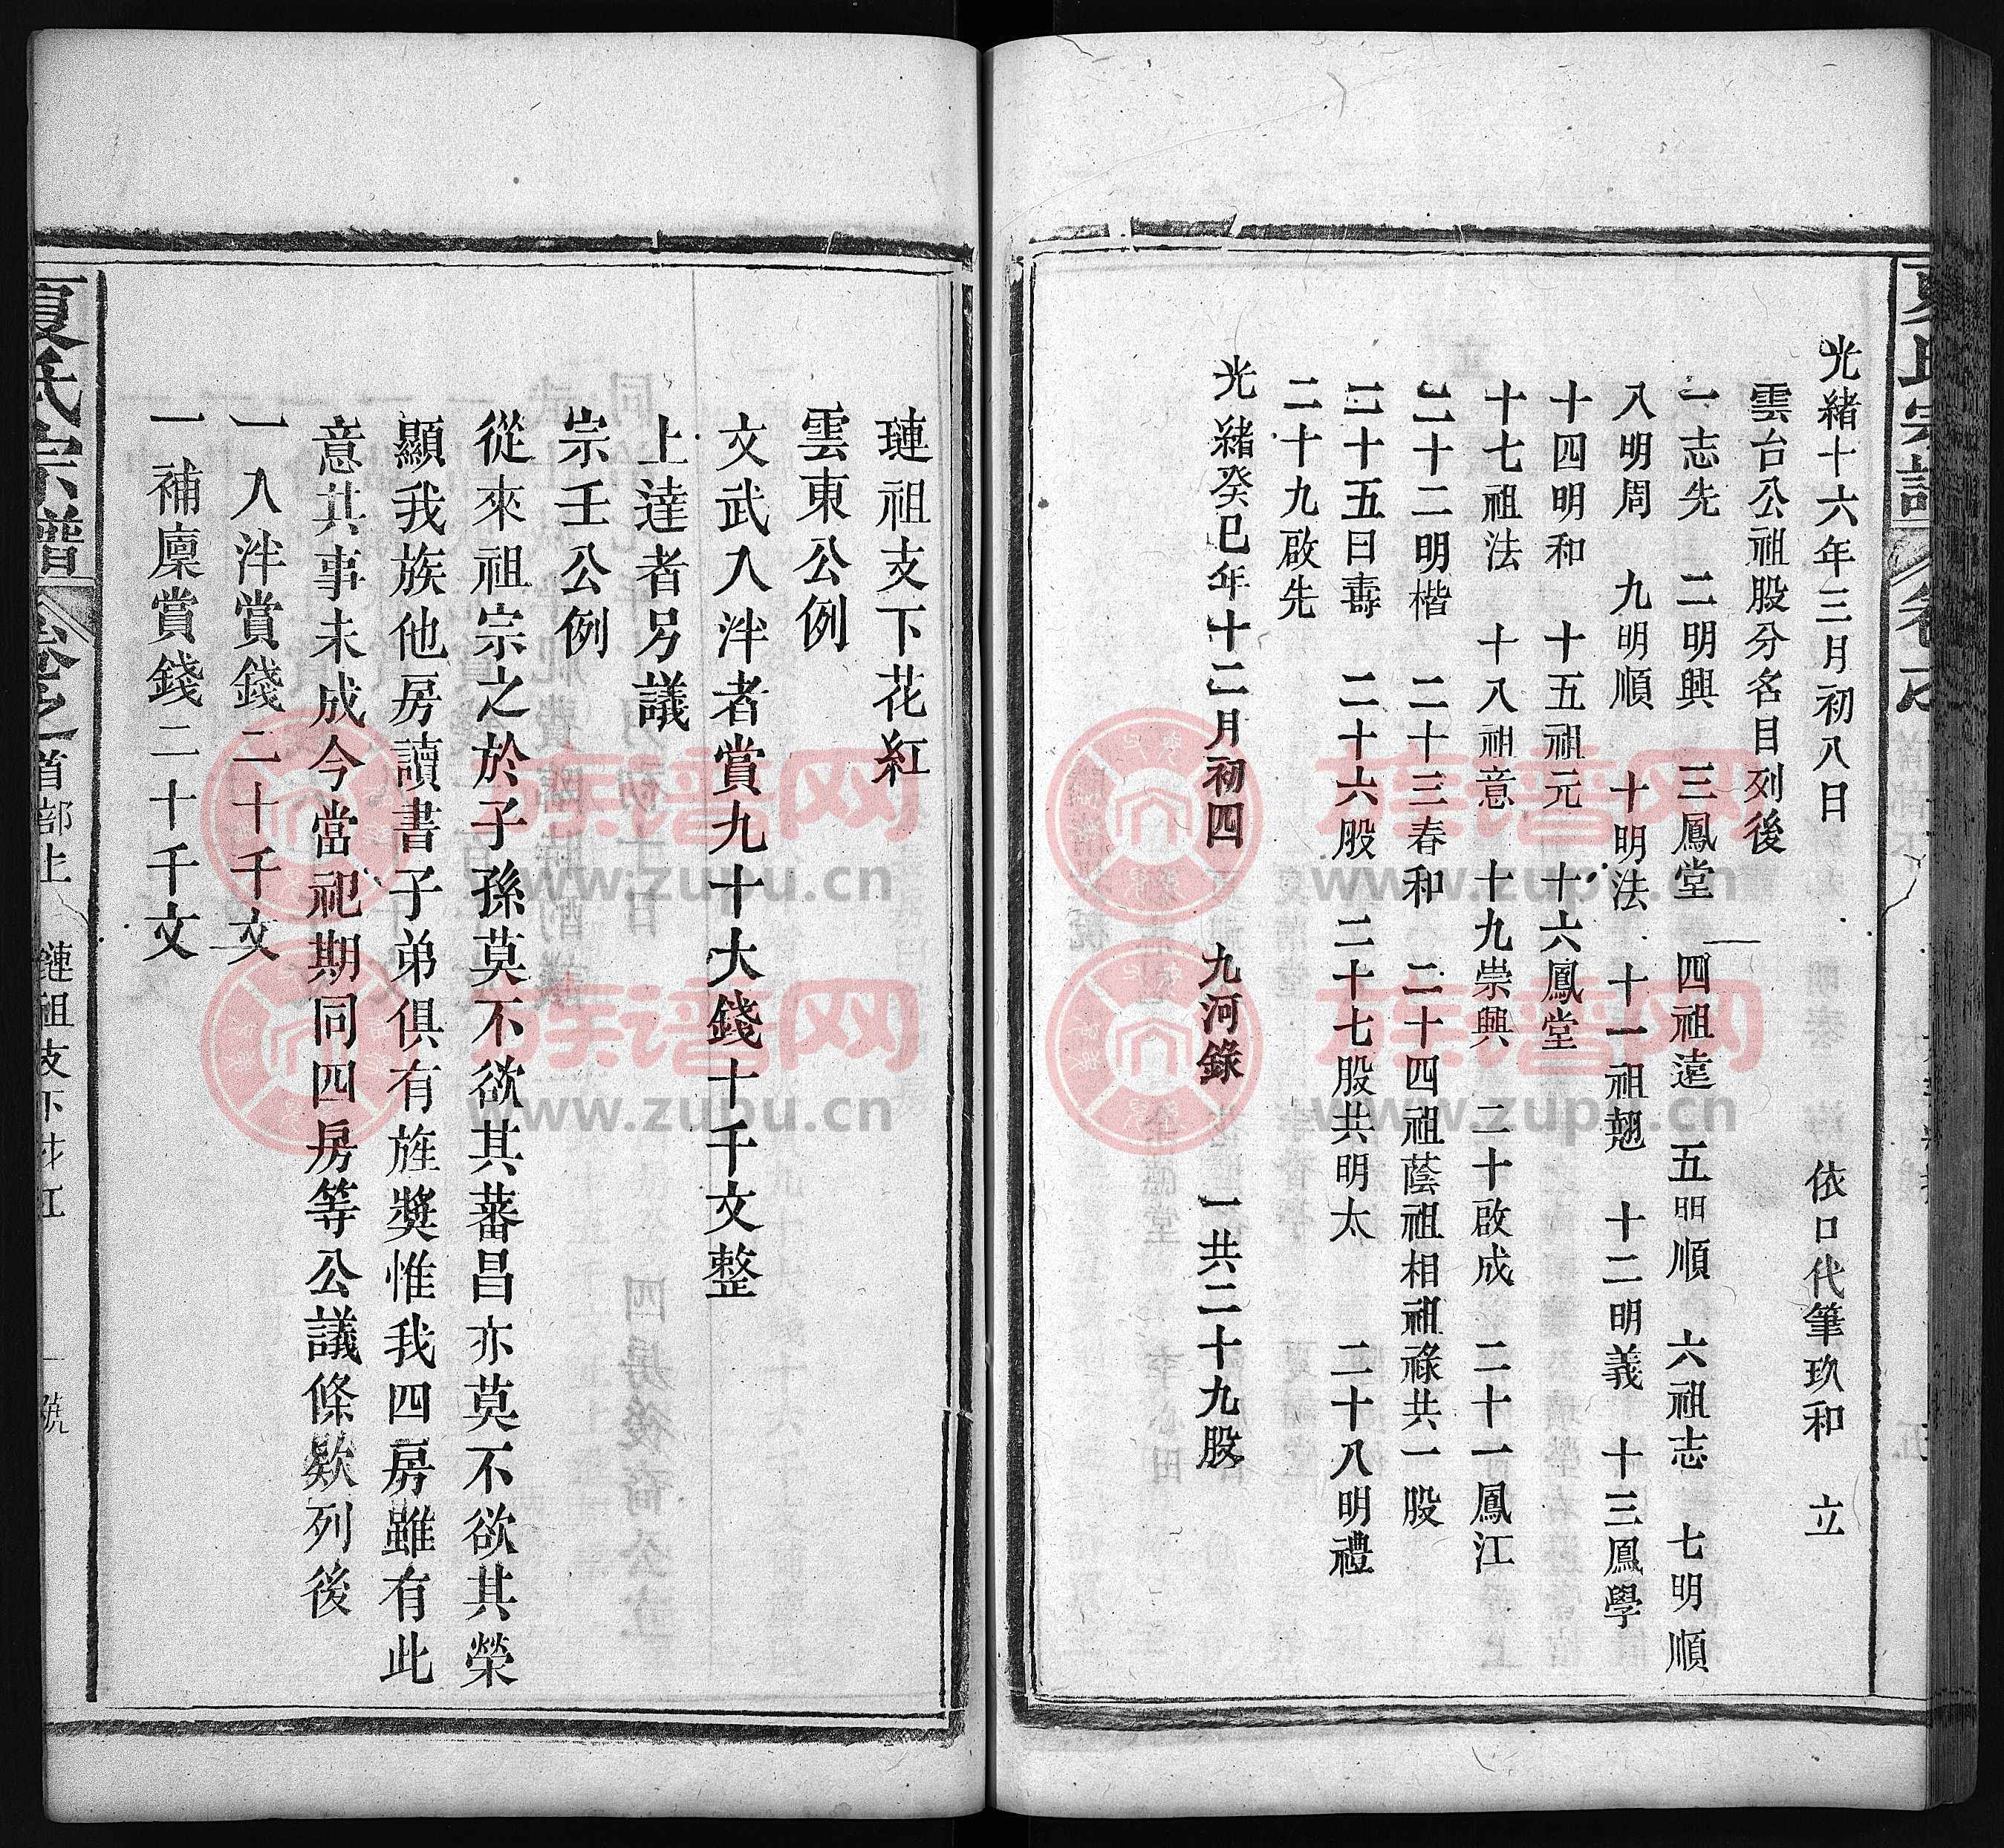 光緒十六年三月初八日 依口代筆玖和 立
雲台公祖股分名目列後
一志先 二明興 三鳳堂 四祖遠 五明順 六祖志 七明順
八明周 九明順 十明法 十一祖翹 十二明義 十三鳳學
十四明和 十五祖元 十六鳳堂
十七祖法 十八祖意 十九崇興 二十啟成 二十一鳳江
二十二明楷 二十三春和 二十四祖蔭祖相祖祿共一股
二十五日壽 二十六股 二十七股共明太 二十八明禮
二十九啟先
光緒癸巳年十二月初四 九河錄 一共二十九股
璉祖支下花紅
雲東公例
文武入泮者賞九十大錢十千文整
上達者另議
宗壬公例
從來祖宗之於子孫莫不欲其蕃昌亦莫不欲其榮
顯我族他房讀書子弟俱有旌獎惟我四房雖有此
意其事未成今當祀期同四房等公議條欵列後
一入泮賞錢二十千文
一補廩賞錢二十千文
夏氏宗譜 卷之首部上 璉祖支下花紅 一號
族譜网
www.zupu.cn
族譜网
www.zupu.cn
族譜网
www.zupu.cn
族譜网
www.zupu.cn